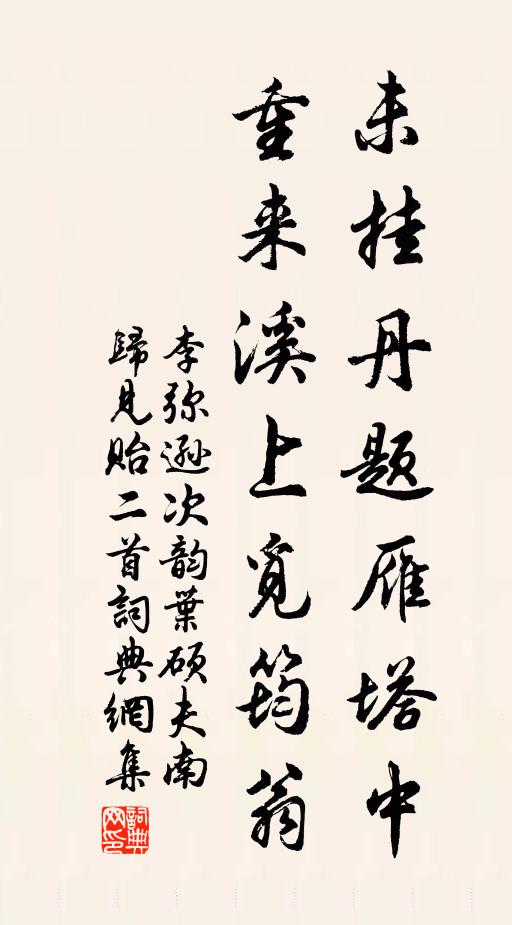 未挂丹题雁塔中
重来溪上觅筠翁
李弥逊次韵叶硕夫南
歸見贻二首詞典網集
詞典
网印